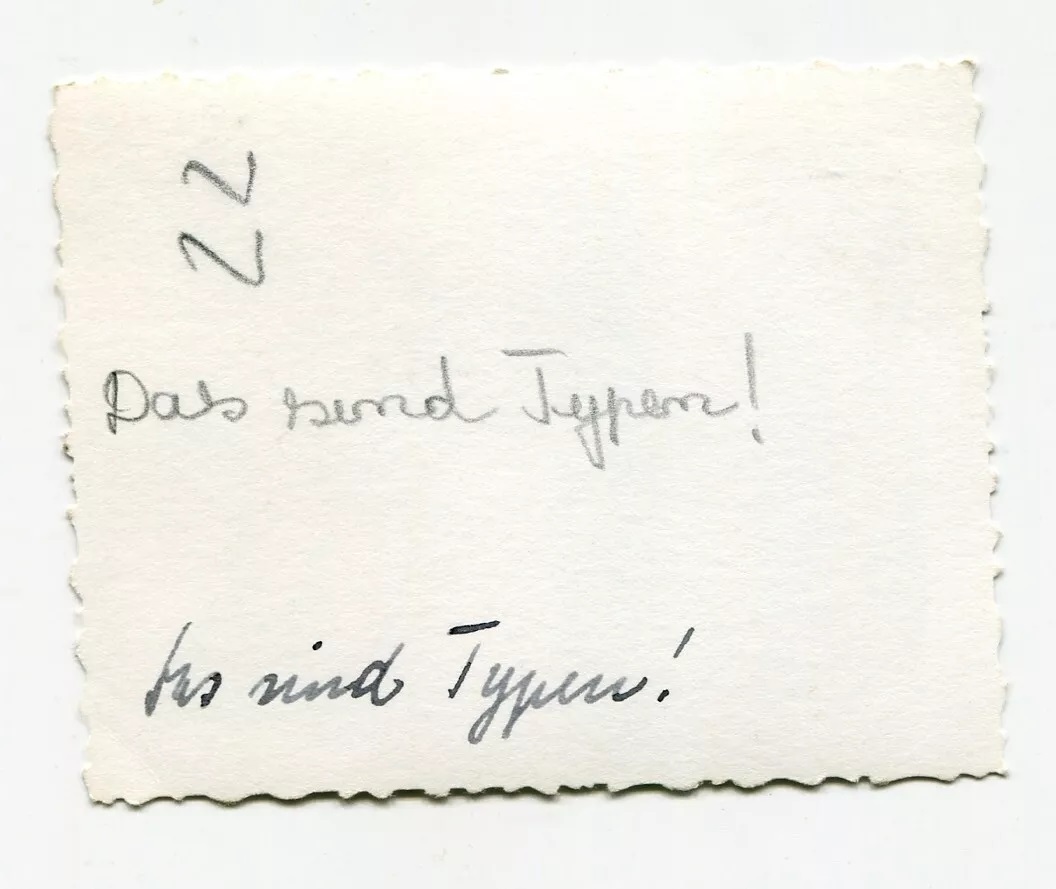 22
Das sind Typen!
Des sind Typen!